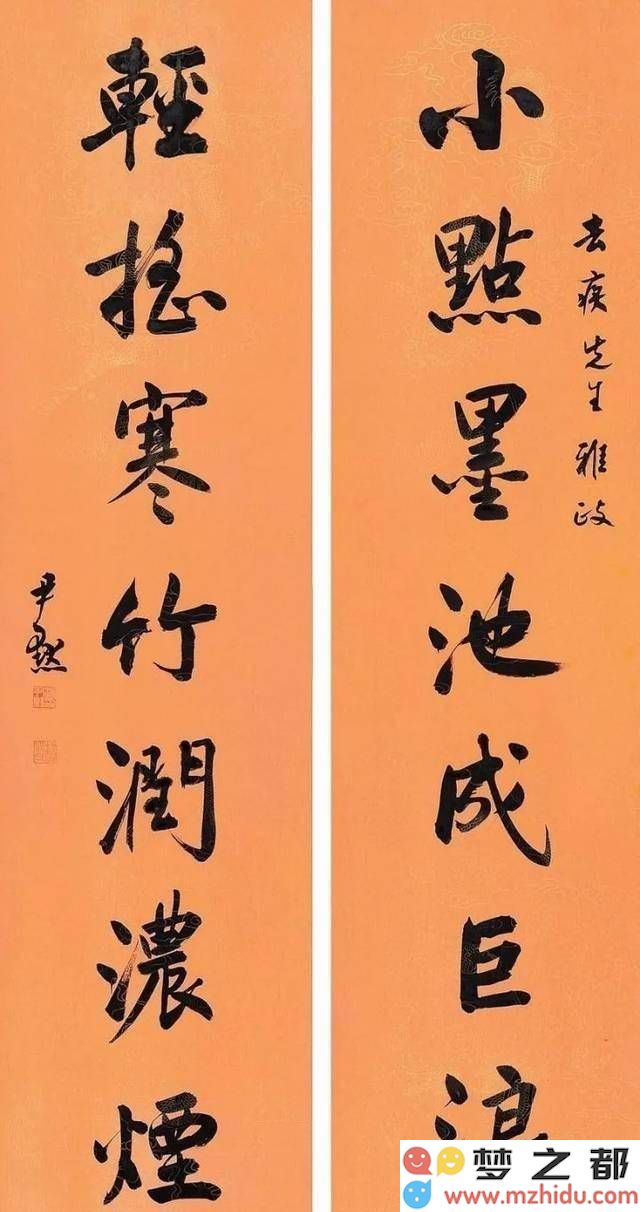 去疾先生雅政
小點墨池成巨浪
輕搖寒竹潤濃煙
尹默
梦之都
www.mzhidu.com